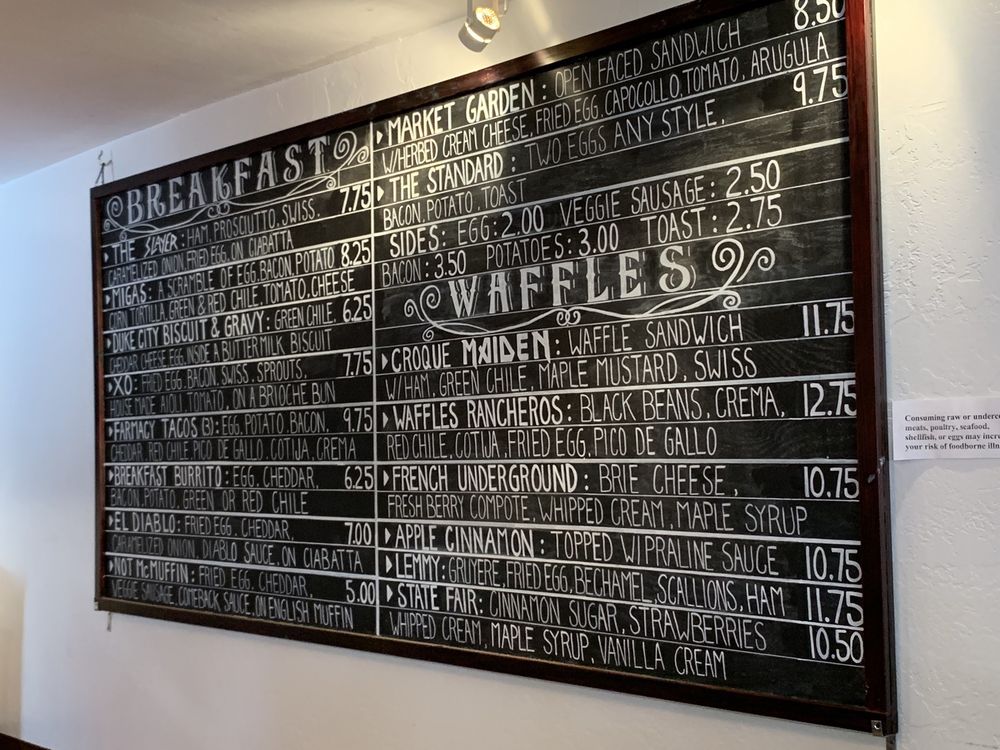 BREAKFAST
THE SLAYER: HAM, PROSCIUTTO, SWISS, 7.75
CARAMELIZED ONION, FRIED EGG, ON CIABATTA
MIGAS: A SCRAMBLE OF EGG, BACON, POTATO 8.25
CORN TORTILLA, GREEN & RED CHILE, TOMATO, CHEESE
DUKE CITY BISCUIT & GRAVY: GREEN CHILE, 6.25
CHEDAR CHEESE EGG, INSIDE A BUTTERMILK BISCUIT
XO: FRIED EGG, BACON, SWISS, SPROUTS, 7.75
HOUSE MADE AIOLI TOMATO, ON A BRIOCHE BUN
FARMACY TACOS (3): EGG, POTATO, BACON, 9.75
CHEDAR, RED CHILE, PICO, COTIJA, CREMA
BREAKFAST BURRITO: EGG, CHEDDAR, 6.25
BACON, POTATO, GREEN OR RED CHILE
EL DIABLO: FRIED EGG, CHEDDAR, 7.00
CARAMELIZED ONION, DIABLO SAUCE, ON CIABATTA
NOT McMUFFIN: FRIED EGG, CHEDDAR, 5.00
VEGGIE SAUSAGE, COMEBACK SAUCE, ON ENGLISH MUFFIN
MARKET GARDEN: OPEN FACED SANDWICH 8.50
W/HERBED CREAM CHEESE, FRIED EGG, CAPOCOLLO, TOMATO, ARUGULA
THE STANDARD: TWO EGGS ANY STYLE, 9.75
BACON, POTATO, TOAST
SIDES: EGG: 2.00 VEGGIE SAUSAGE: 2.50
BACON: 3.50 POTATOES: 3.00 TOAST: 2.75
WAFFLES
CROQUE MAIDEN: WAFFLE SANDWICH 11.75
W/HAM, GREEN CHILE, MAPLE MUSTARD, SWISS
WAFFLES RANCHEROS: BLACK BEANS, CREMA, 12.75
RED CHILE, COTIJA, FRIED EGG, PICO DE GALLO
FRENCH UNDERGROUND: BRIE CHEESE, 10.75
FRESH BERRY COMPOTE, WHIPPED CREAM, MAPLE SYRUP
APPLE CINNAMON: TOPPED W/PRALINE SAUCE 10.75
LEMMY: GRUYERE, FRIED EGG, BECHAMEL, SCALLIONS, HAM 11.75
STATE FAIR: CINNAMON SUGAR, STRAWBERRIES 10.50
WHIPPED CREAM, MAPLE SYRUP, VANILLA CREAM
Consuming raw or
meats, poultry, seafood,
shellfish, or eggs may
your risk of foodborne